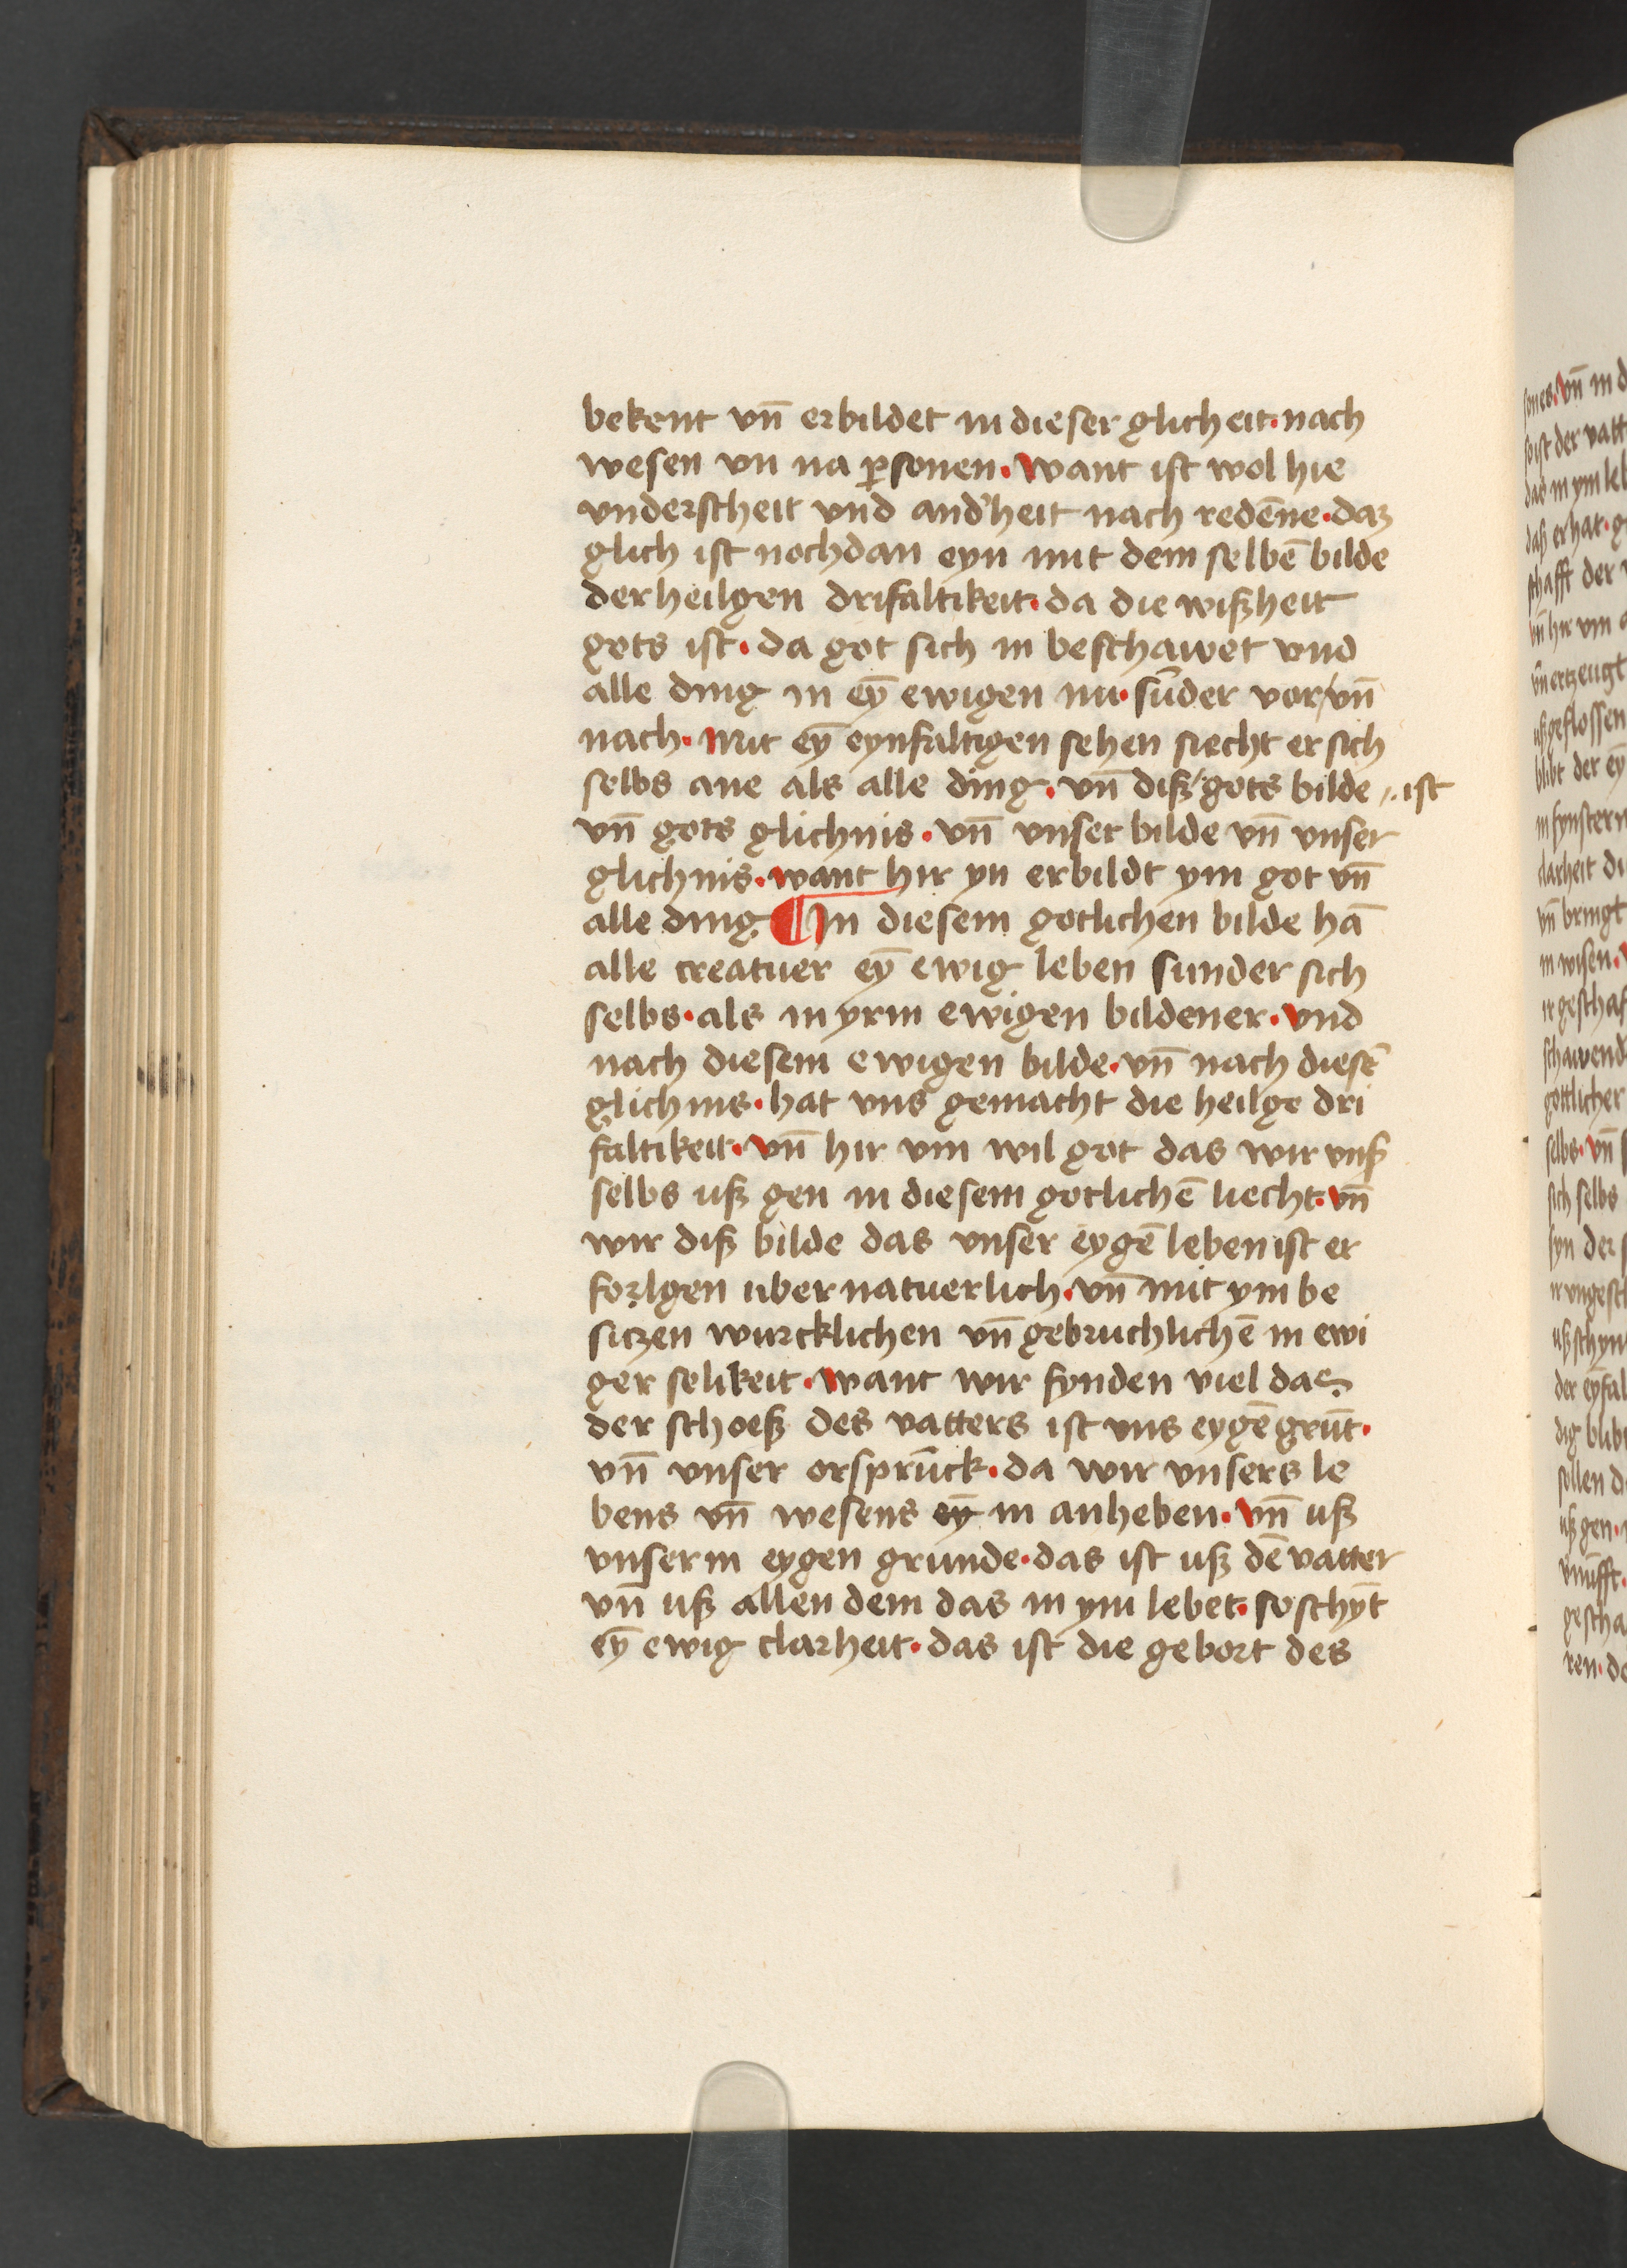 bekent vn̄ erbildet in dieser glicheit· nach
wesen vn na ꝑsonen· want ist wol hie
vnderscheit vnd and'heit nach redēne· daz
glich ist nochdan eyn mit dem selbē bilde
der heilgen drifaltikeit· da die wißheit
gots ist· da got sich in beschawet vnd
alle ding in eȳ ewigen nu· sūder vor/vn̄
nach· Mit eȳ eynfaltigen sehen siecht er sich
selbs ane als alle ding· vn̄ diß/gots bilde ·ist
vn̄ gots glichnis· vn̄ vnser bilde vn̄ vnser
glichnis· want hir yn erbildt ym got vn̄
alle ding ¶ In diesem gotlichen bilde hā
alle creatuer eȳ ewig leben sunder sich
selbs· als in yrm ewigen bildener· vnd
nach diesem ewigen bilde· vn̄ nach diesē
glichnis· hat vns gemacht die heilge dri
faltikeit· vn̄ hir vm wil got das wir vnß
selbs uß gen in diesem gotlichē liecht· vn̄
wir diß bilde das vnser eygē leben ist er
forlgen uber natuerlich· vn̄ mit ym be
sitzen wurcklichen vn̄ gebruchlichē in ewi
ger selikeit· want wir fynden viel das
der schoeß des vatters ist vns eygē grūt·
vn̄ vnser orsprūck· da wir vnsers le
bens vn̄ wesens eȳ in anheben· vn̄ uß
vnserm eygen grunde· das ist uß dē vatter
vn̄ uß allen dem das in ym lebet· so schȳt
eȳ ewig clarheit· das ist die gebort des